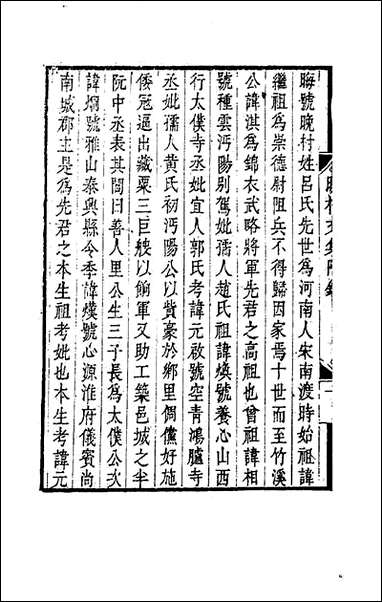 晦號晚村姓呂氏先世為河南人宋南渡時始祖諱
繼祖為崇德尉阻兵不得歸因家焉十世而至竹溪
公諱淇為錦衣武略將軍先君之高祖也曾祖諱相
號種雲沔陽別駕妣孺人趙氏祖諱煥號養心山西
行太僕寺丞妣宜人郭氏考諱元啟號空青鴻臚寺
丞妣孺人黃氏初沔陽公以貲豪於鄉里倜儻好施
倭寇逼出藏粟三巨艘以餉軍又助工築邑城之半
阮中丞表其閭曰善人里公生三子長為太僕公次
諱炯號雅山泰興縣令季諱爌號心源淮府儀賓尚
南城郡主是為先君之本生祖考妣也本生考諱元